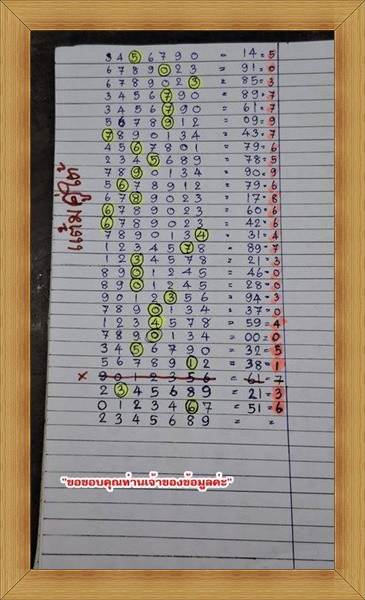 3 4 5 6 7 9 0 = 14 = 5
6 7 8 9 0 2 3 = 91 = 0
6 7 8 9 0 2 3 = 85 = 3
3 4 5 6 7 9 0 = 89 = 7
3 4 5 6 7 9 0 = 61 = 7
5 6 7 8 9 1 2 = 09 = 9
7 8 9 0 1 3 4 = 43 = 7
4 5 6 7 8 0 1 = 79 = 6
2 3 4 5 6 8 9 = 78 = 5
7 8 9 0 1 3 4 = 90 = 9
5 6 7 8 9 1 2 = 79 = 6
6 7 8 9 0 2 3 = 17 = 8
6 7 8 9 0 2 3 = 60 = 6
6 7 8 9 0 2 3 = 42 = 6
7 8 9 0 1 3 4 = 31 = 4
1 2 3 4 5 7 8 = 89 = 7
1 2 3 4 5 7 8 = 21 = 3
8 9 0 1 2 4 5 = 46 = 0
8 9 0 1 2 4 5 = 28 = 0
9 0 1 2 3 5 6 = 94 = 3
7 8 9 0 1 3 4 = 37 = 0
1 2 3 4 5 7 8 = 59 = 4
7 8 9 0 1 3 4 = 00 = 0
3 4 5 6 7 9 0 = 32 = 5
5 6 7 8 9 1 2 = 38 = 1
x 9 0 1 2 3 5 6 = 61 = 7
2 3 4 5 6 8 9 = 21 = 3
0 1 2 3 4 6 7 = 51 = 6
2 3 4 5 6 8 9 = =
"ขอขอบคุณท่านเจ้าของข้อมูลค่ะ"